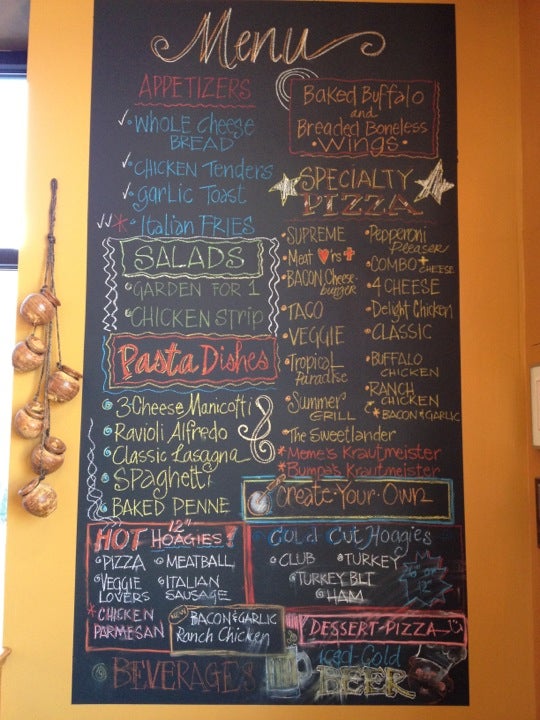 Menu
APPETIZERS
WHOLE Cheese
BREAD
CHICKEN Tenders
garlic Toast
Italian FRIES
Baked Buffalo
and
Breaded Boneless
WINGS
SALADS
GARDEN FOR 1
CHICKEN Strip
Pasta Dishes
3 Cheese Manicotti
Ravioli Alfredo
Classic Lasagna
Spaghetti
BAKED PENNE
SPECIALTY
PIZZA
SUPREME
Meat ♥'rs
BACON Cheese-
burger
TACO
VEGGIE
Tropical
Paradise
Summer
GRILL
The Sweetlander
Meme's Krautmeister
Bumpa's Krautmeister
Pepperoni
Pleaser
COMBO + CHEESE
4 CHEESE
Delight Chicken
CLASSIC
BUFFALO
CHICKEN
RANCH
CHICKEN
BACON & GARLIC
Create-Your-Own
HOT 12" HOAGIES!
PIZZA
VEGGIE
LOVERS
CHICKEN
PARMESAN
MEATBALL
ITALIAN
SAUSAGE
NEW
BACON & GARLIC
Ranch Chicken
Cold Cut Hoagies
CLUB
TURKEY
TURKEY BLT
HAM
6" or
12"
DESSERT-PIZZA
BEVERAGES
Iced-Cold
BEER